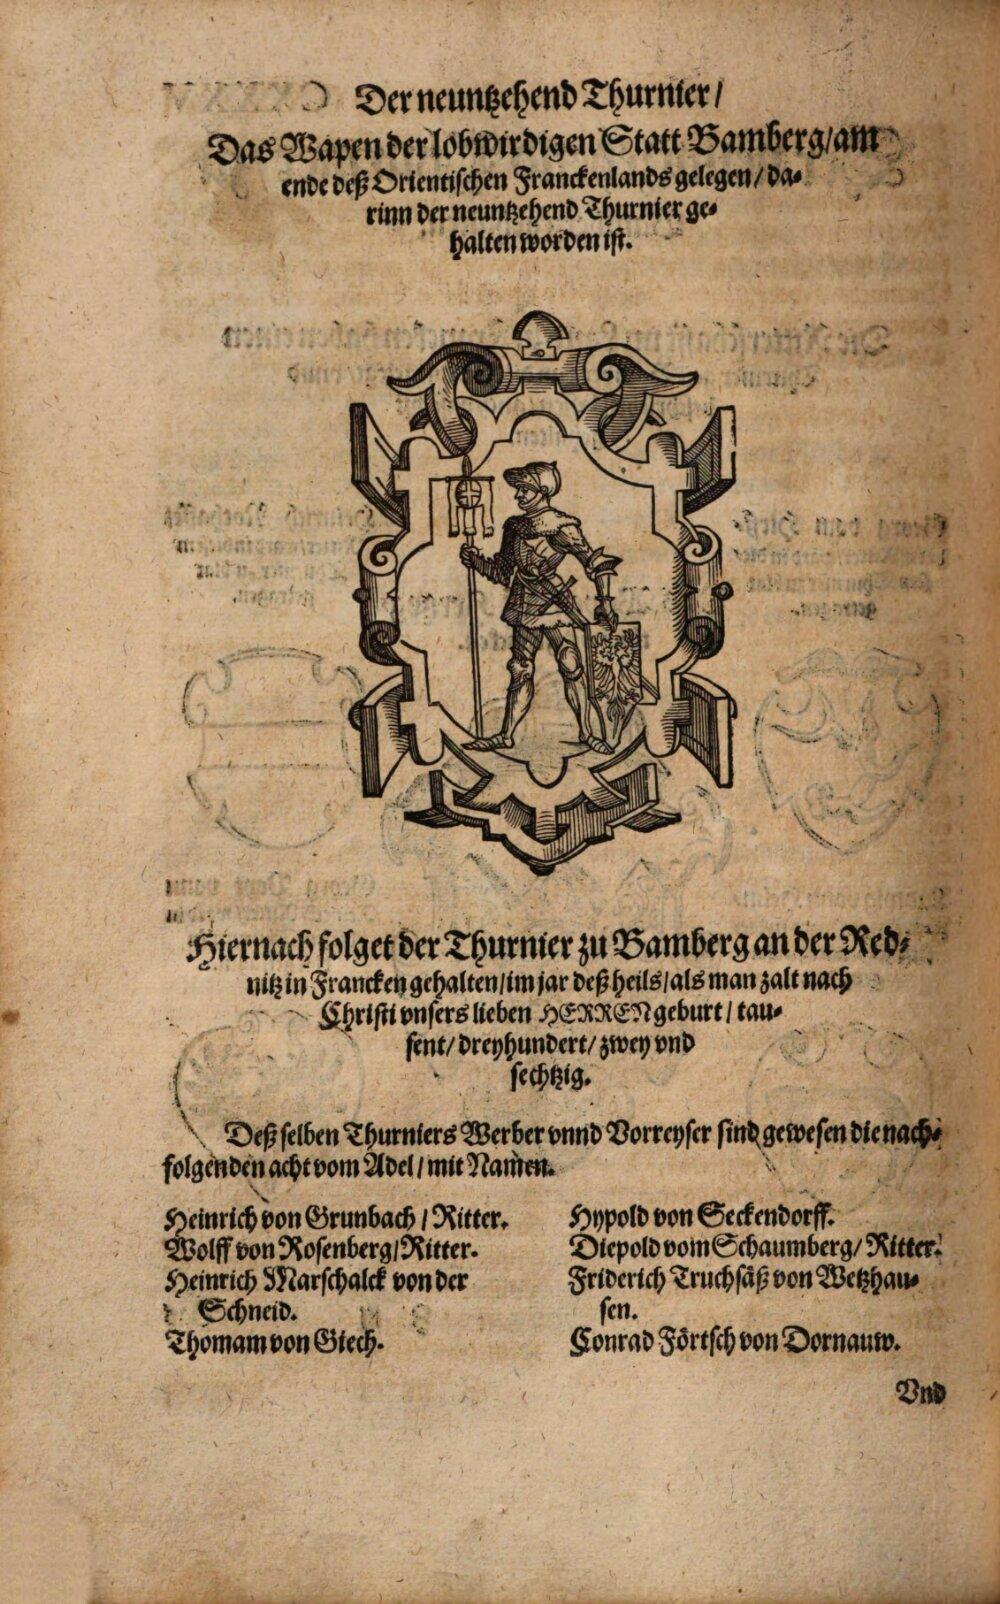 Der neuntzehend Thurnier /
Das Wapen der lobwirdigen Statt Bamberg / am
ende deß Orientischen Franckenlands gelegen / da-
rinn der neuntzehend Thurnier ge-
halten worden ist.
Hiernach folget der Thurnier zu Bamberg an der Red-
nitz in Francken gehalten / im jar deß heils / als man zalt nach
Christi vnsers lieben HERREN geburt / tau-
sent / dreyhundert / zwey vnd
sechtzig.
Deß selben Thurniers Werber vnnd Vorreyser sind gewesen die nach-
folgenden acht vom Adel / mit Namen.
Heinrich von Grunbach / Ritter.
Wolff von Rosenberg / Ritter.
Heinrich Marschalck von der
Schneid.
Thomam von Giech.
Hypold von Seckendorff.
Diepold vom Schaumberg / Ritter.
Friderich Truchsäß von Wetzhau-
sen.
Conrad Förtsch von Dornauw.
Vnd